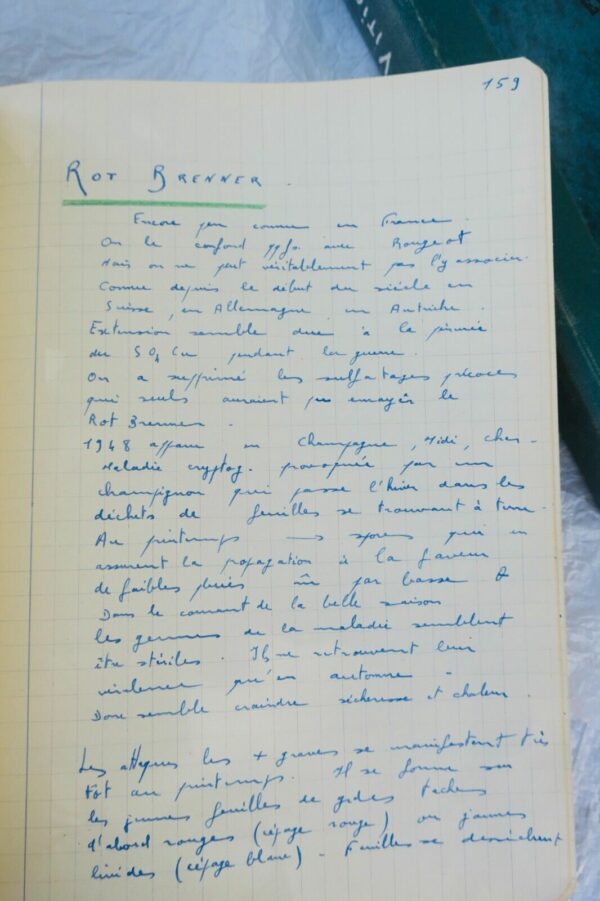 VITI
159
ROT BRENNER
Encore peu connu en France.
On le confond qqfo. avec Rougeot
Mais on ne peut véritablement pas l'y associer.
Connu depuis le début du siècle en
Suisse, en Allemagne, en Autriche.
Extension semble due à la pénurie
du SO4Cu pendant la guerre.
On a supprimé les sulfatages précoces
qui seuls auraient pu enrayer le
Rot Brenner.
1948 apparu en Champagne, Midi, Cher -
Maladie cryptog. provoquée par un
champignon qui passe l'hiver dans les
déchets de feuilles se trouvant à terre.
Au printemps → spores qui en
assurent la propagation à la faveur
de faibles pluies même par basse
Dans le courant de la belle saison
les germes de la maladie semblent
être stériles. Ils ne retrouvent leur
virulence qu'en automne -
Donc semble craindre sécheresse et chaleur.
Les attaques les + graves se manifestent très
tôt au printemps. Il se forme sur
les jeunes feuilles de gdes taches
d'abord rouges (cépage rouge) ou jaunes
livides (cépage blanc) - Feuilles se dessèchent